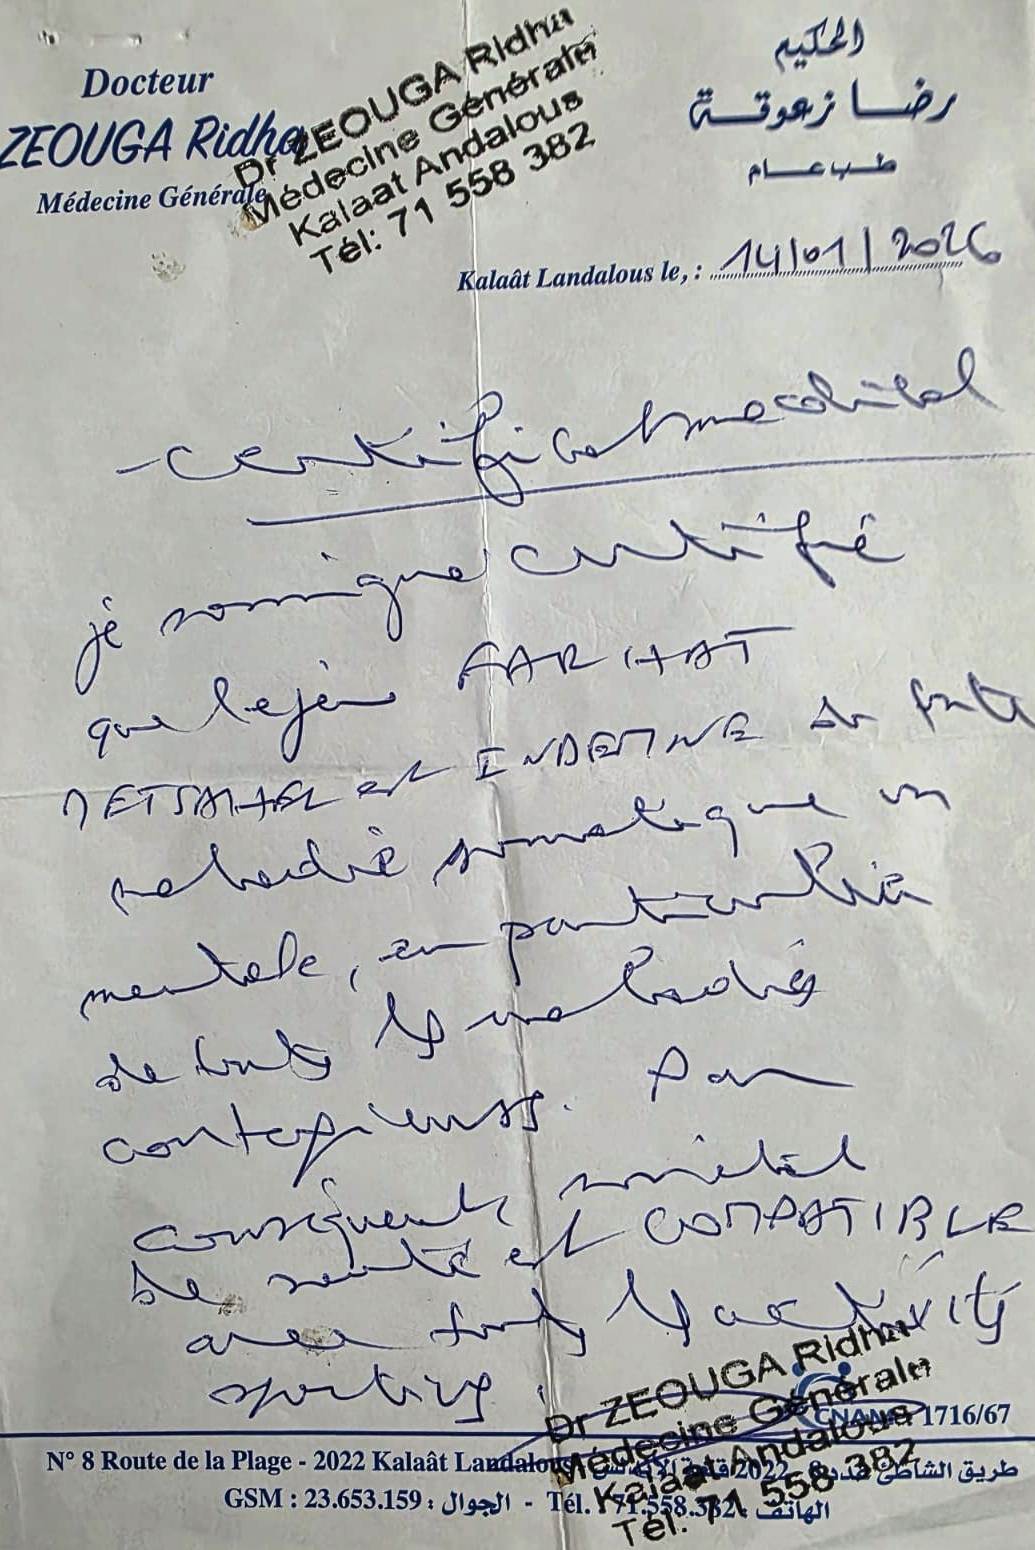 Docteur
ZEOUGA Ridha
Médecine Générale
Dr ZEOUGA Ridha
Médecine Générale
Kalaat Andalous
Tél: 71 558 382
الحكيم
رضا زعوقة
طب عام
Kalaât Landalous le, : 14/01/2026
certificat medical
je soussigné certifie
que le jeune FARHAT
est INDEMNE de toute
maladie somatique ou
mentale, en particulier
de toutes les maladies
contagieuses. Par
conséquent, son état
de santé est COMPATIBLE
avec toutes les activités
sportives.
Dr ZEOUGA Ridha
Médecine Générale
Kalaat Andalous
Tél: 71 558 382
CNAM 1716/67
N° 8 Route de la Plage - 2022 Kalaât Landalous طريق الشاطئ عدد 8 - 2022 قلعة الأندلس
GSM : 23.653.159 : الجوال - Tél. : 71.558.382 : الهاتف